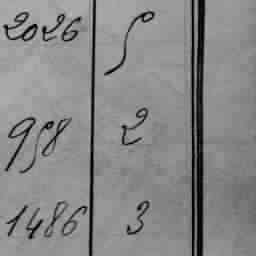 2026 5
958 2
1486 3